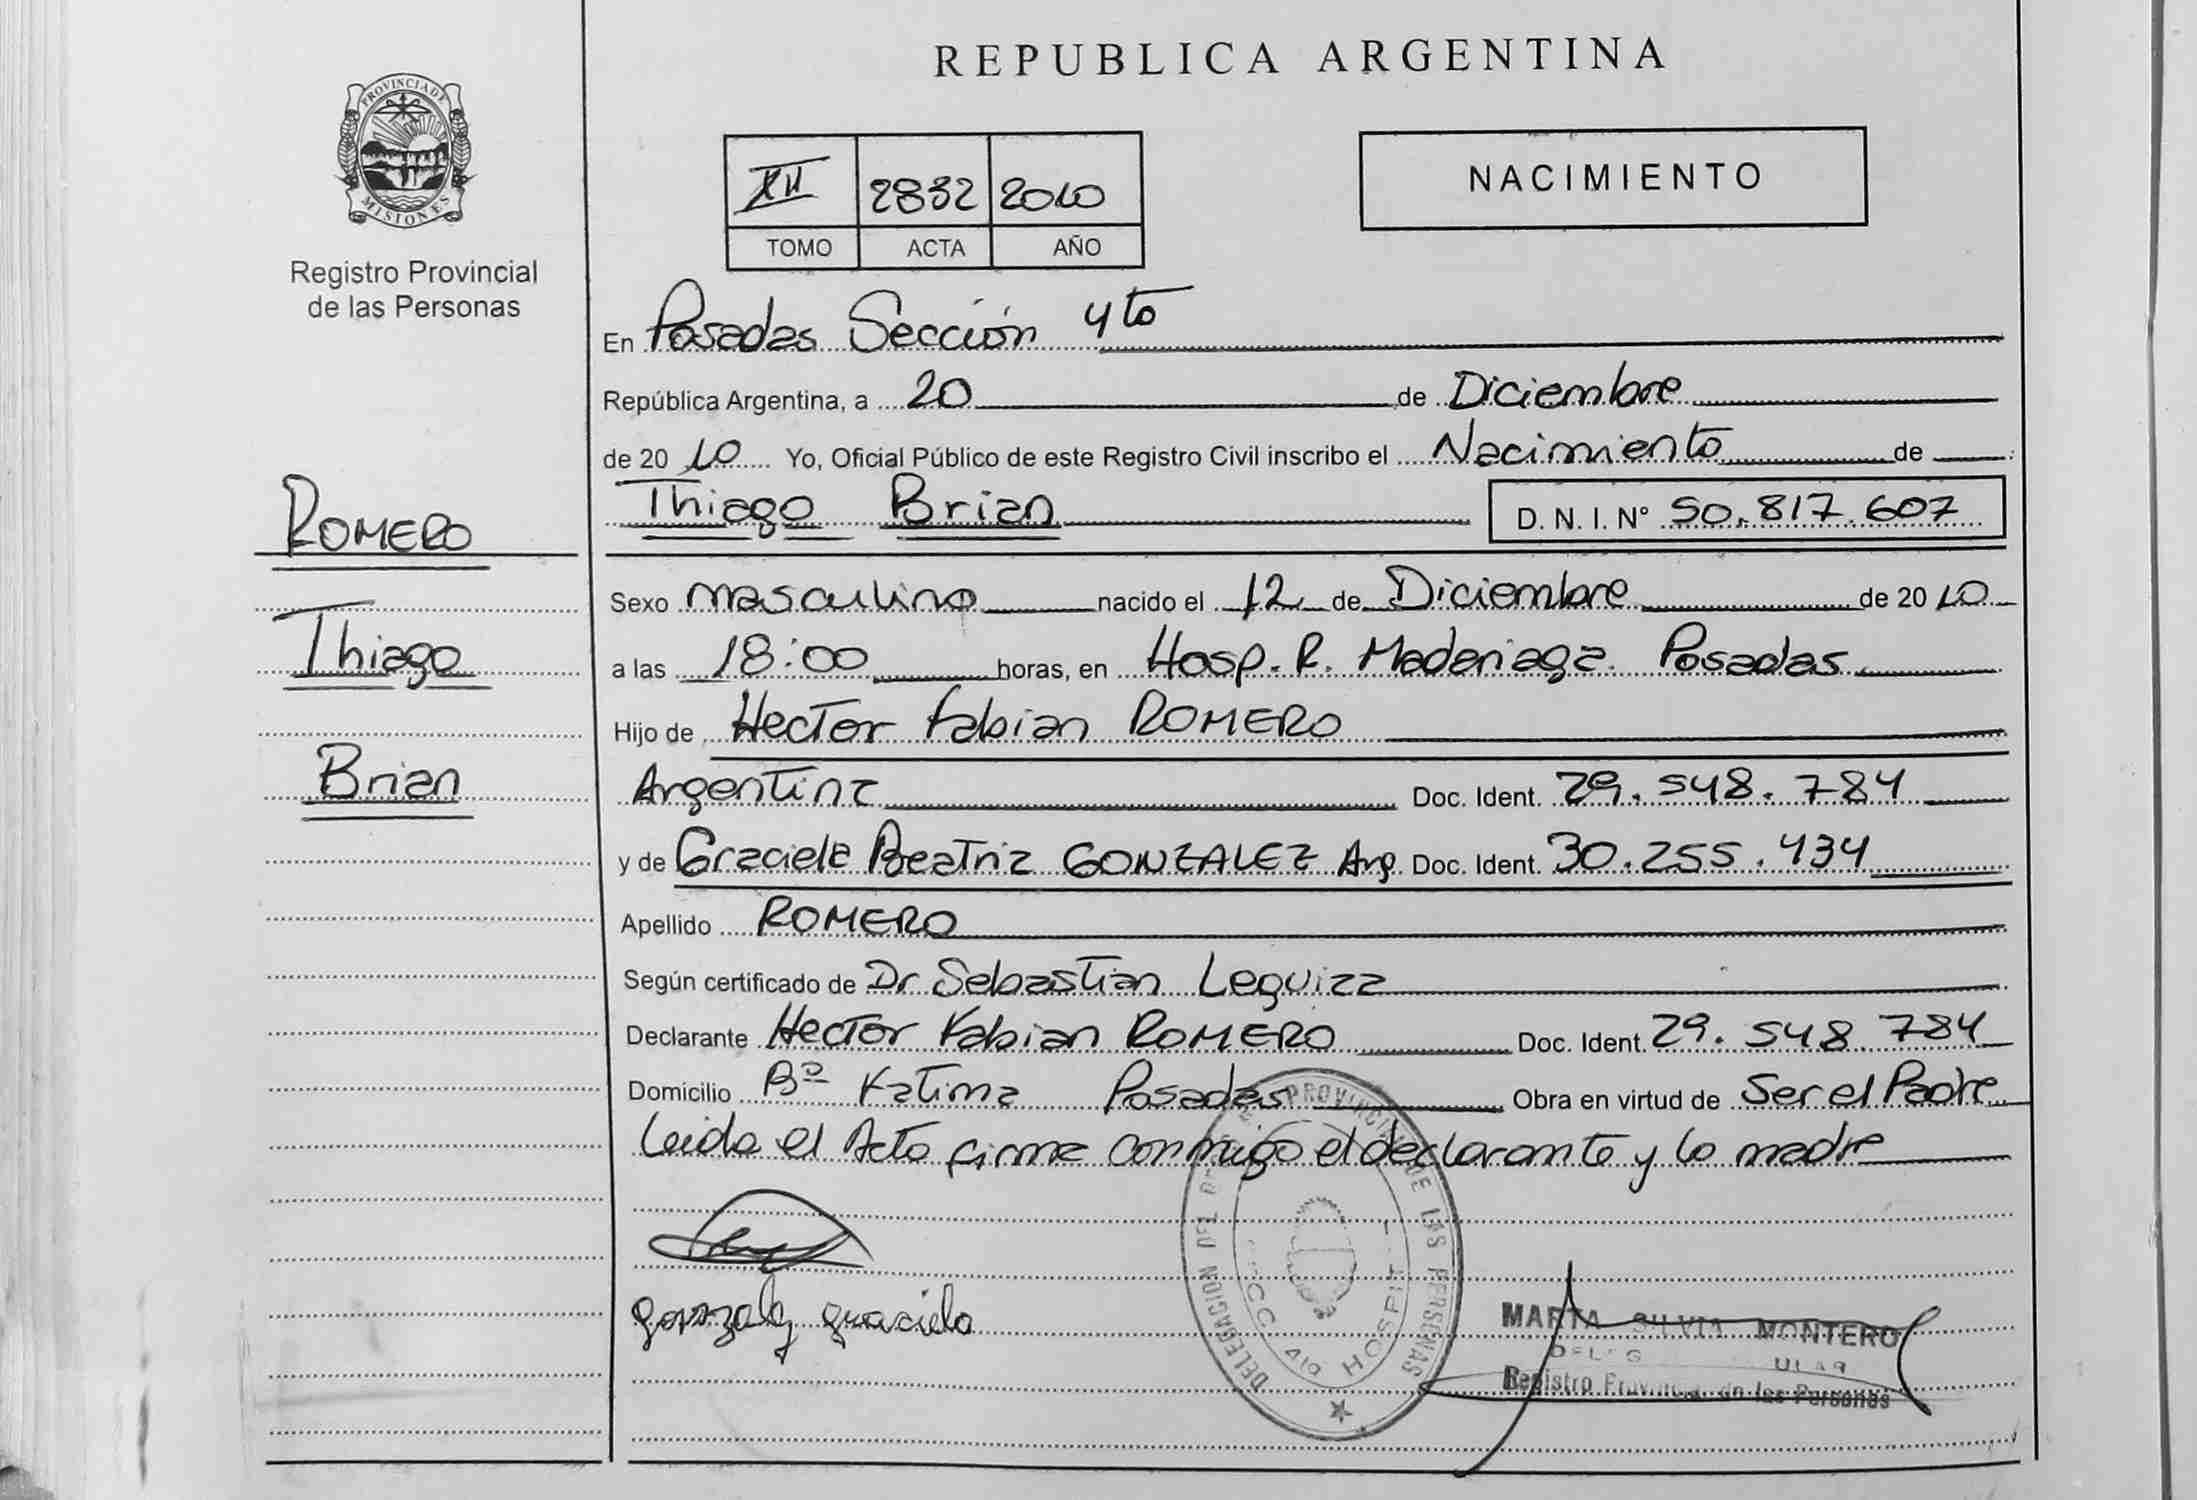 REPUBLICA ARGENTINA
PROVINCIA DE
MISIONES
Registro Provincial
de las Personas
XII 2832 2010
TOMO ACTA AÑO
NACIMIENTO
En Posadas Sección 4to
República Argentina, a 20 de Diciembre
de 2010 Yo, Oficial Público de este Registro Civil inscribo el Nacimiento de
Thiago Brian D. N. I. Nº 50.817.607
ROMERO
Thiago
Brian
Sexo masculino nacido el 12 de Diciembre de 2010
a las 18:00 horas, en Hosp. R. Madariaga Posadas
Hijo de Hector Fabian ROMERO
Argentina Doc. Ident. 29.548.784
y de Graciela Beatriz GONZALEZ Arg. Doc. Ident. 30.255.434
Apellido ROMERO
Según certificado de Dr Sebastian Leguiza
Declarante Hector Fabian ROMERO Doc. Ident. 29.548.784
Domicilio Bº Fatima Posadas Obra en virtud de Ser el Padre
Leida el Acta firma conmigo el declarante y la madre
gonzalez graciela
DELEGACION DEL PROVINCIAL DE LAS PERSONAS
MARTA SILVIA MONTERO
Registro Provincial de las Personas